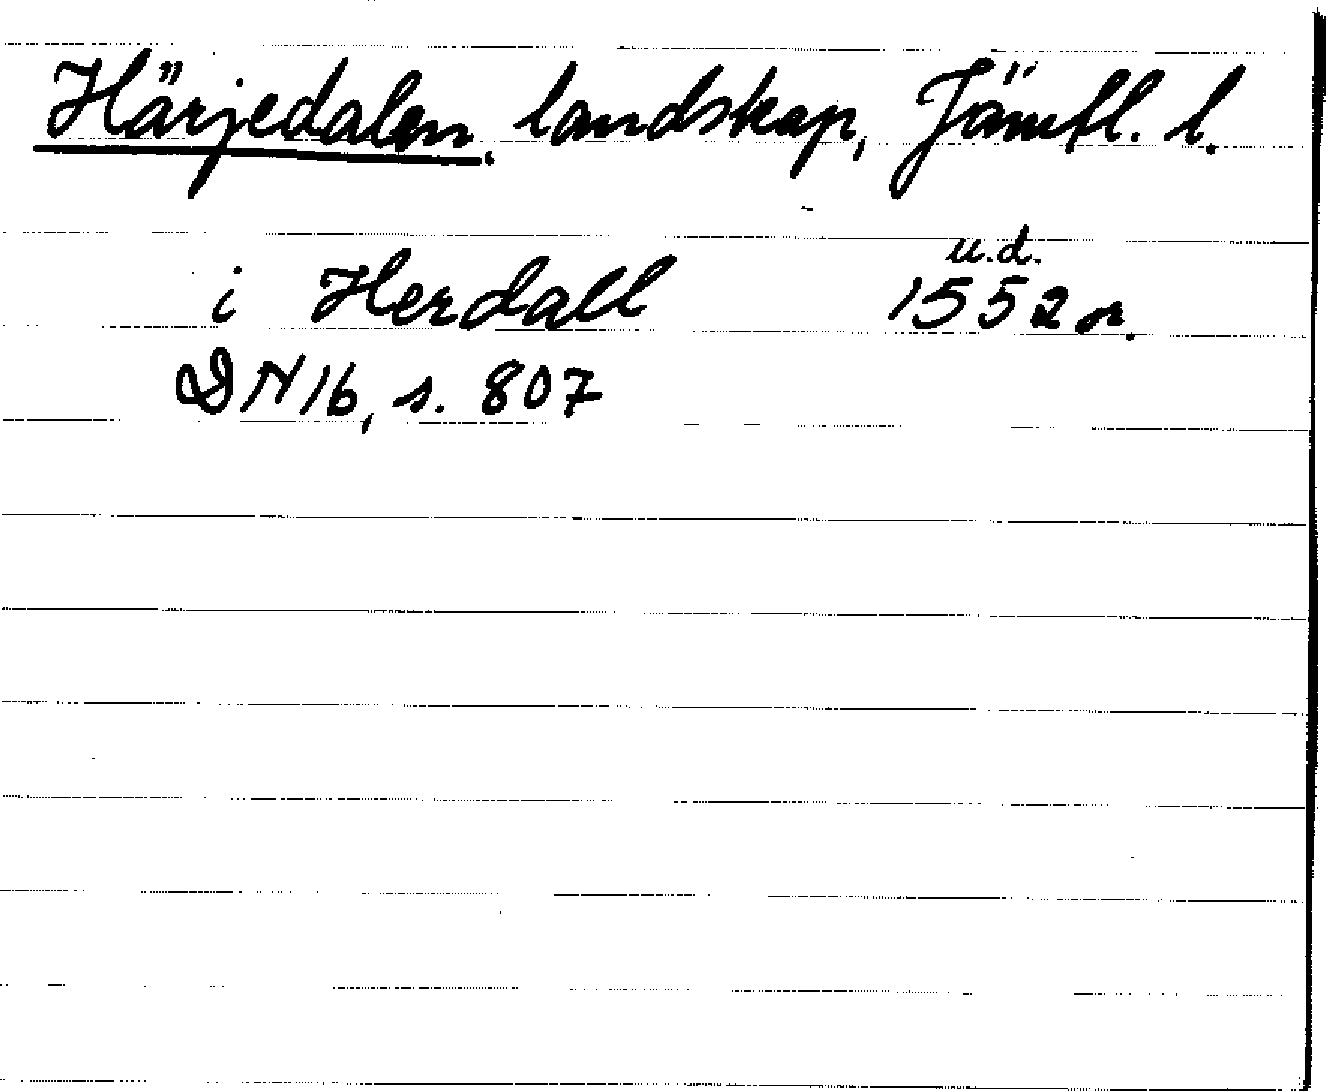 Härjedalen. landskap, Jämtl. l.
u.d.
i Herdall 1552 or.
DN 16, s. 807